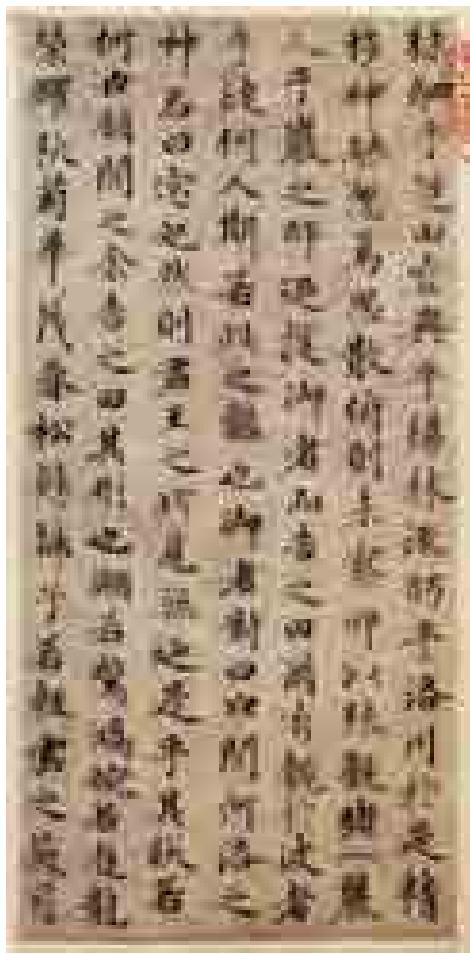 秣駟乎芝田容與乎陽林流眄乎洛川於是精
移神駭忽焉思散俯則未察仰以殊觀睹一麗
人于巖之畔迺援御者而告之曰爾有覿於彼者
乎彼何人斯若此之豔也御者對曰臣聞河洛之
神名曰宓妃然則君王之所見無迺是乎其狀若
何臣願聞之余告之曰其形也翩若驚鴻婉若遊龍
榮曜秋菊華茂春松髣髴兮若輕雲之蔽月